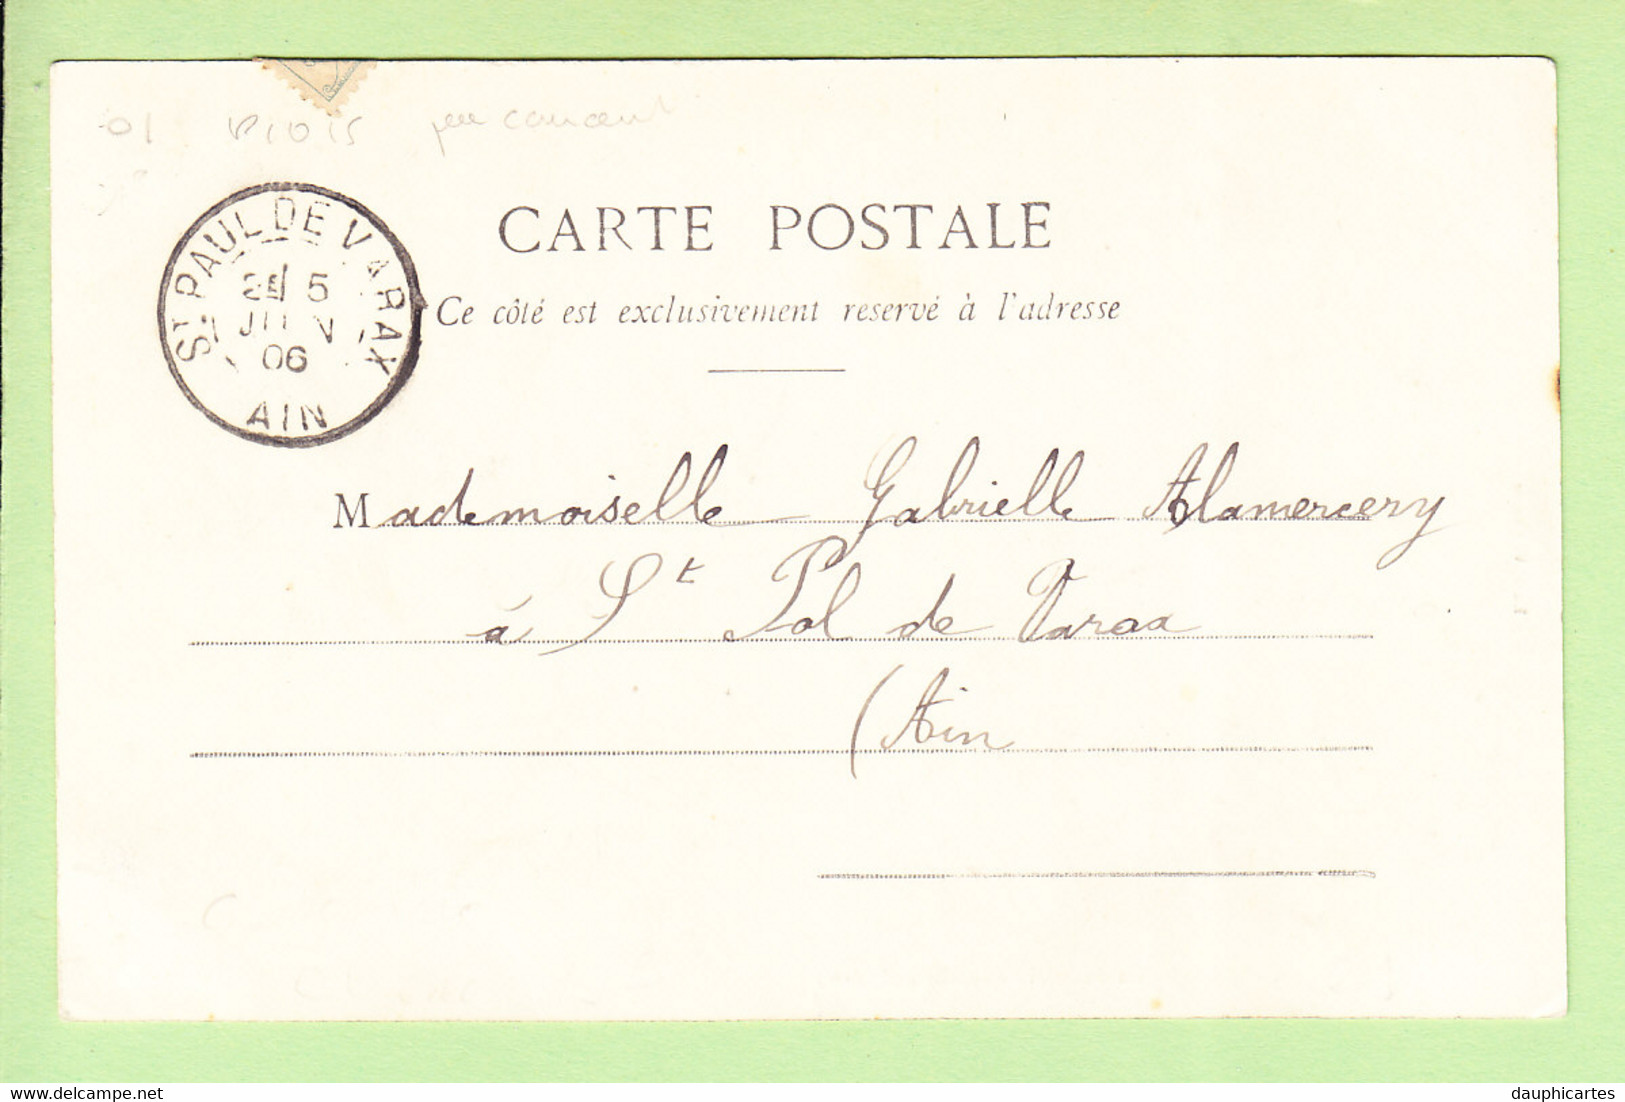 01
CARTE POSTALE
Ce côté est exclusivement reservé à l'adresse
ST PAUL DE VARAX
2E/ 5
JUIN
06
AIN
Mademoiselle Gabrielle Alamercery
à St Pol de Varax
(Ain
dauphicartes